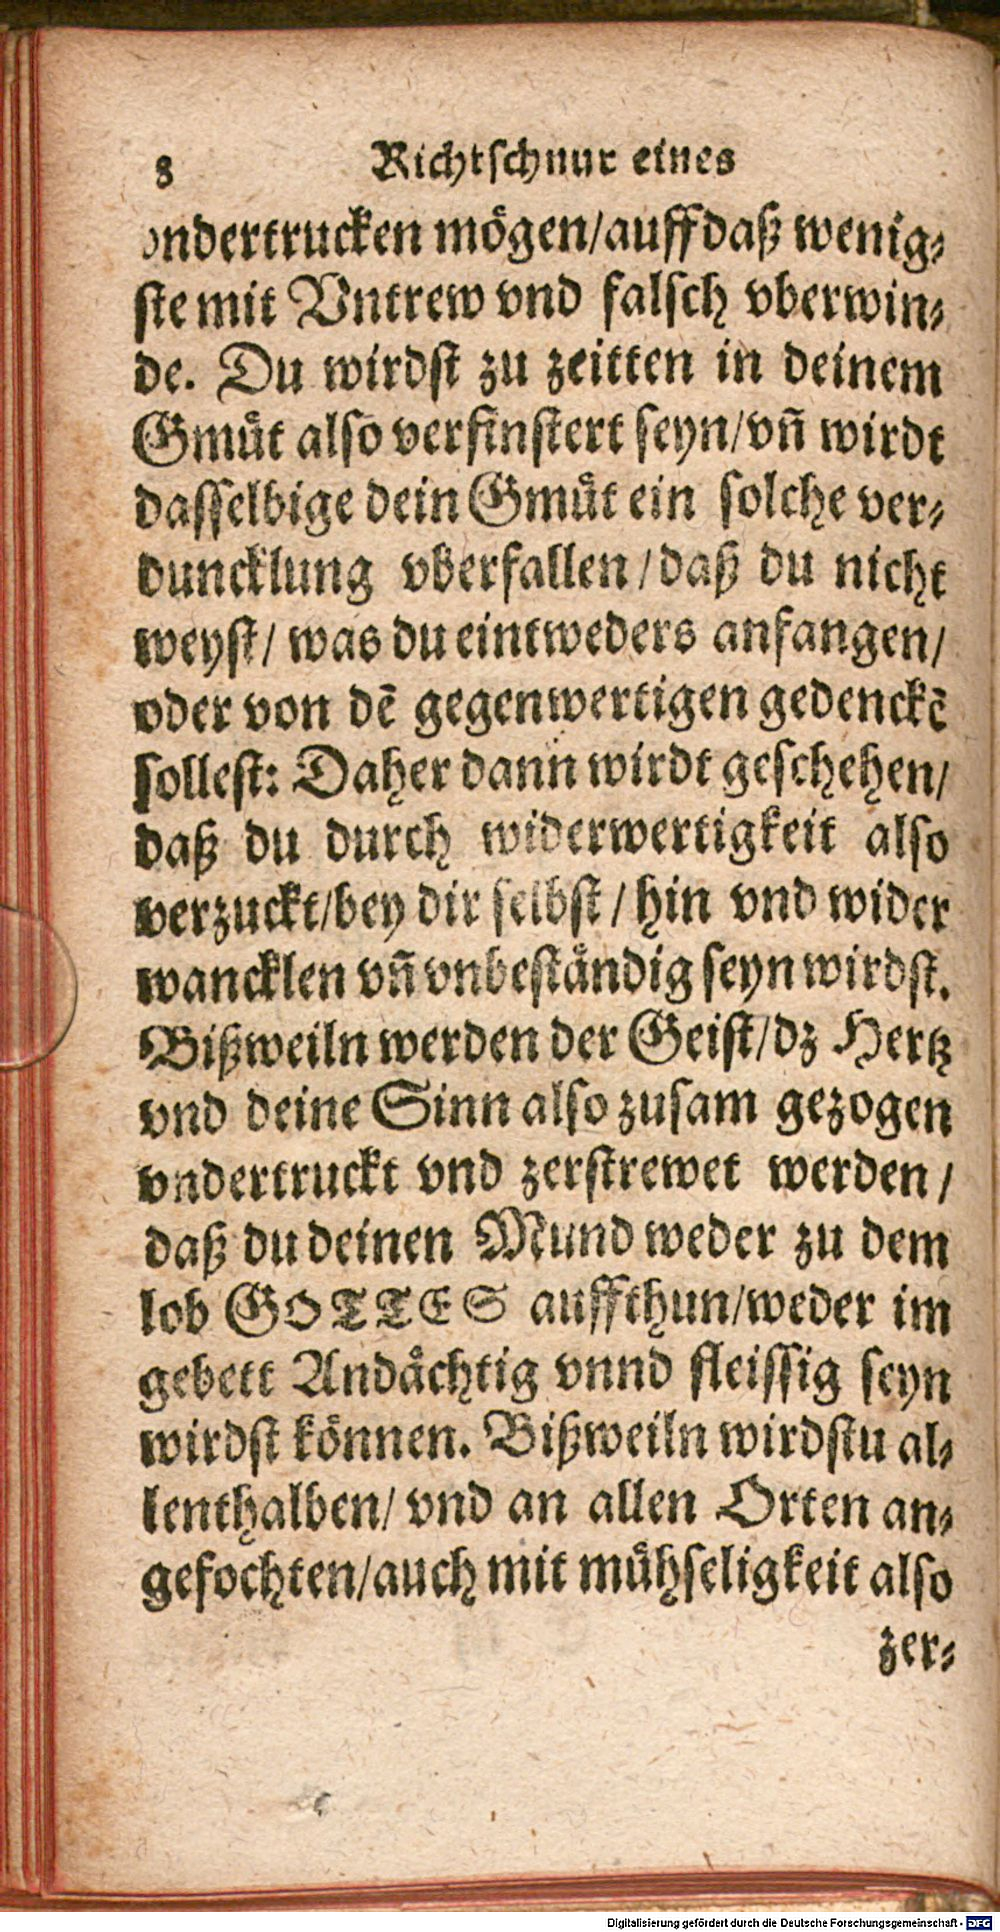 8 Richtschnur eines
vndertrucken mögen/auffdaß wenig⸗
ste mit Vntrew vnd falsch vberwin⸗
de. Du wirdst zu zeitten in deinem
Gmuͤt also verfinstert seyn/vñ wirdt
dasselbige dein Gmuͤt ein solche ver⸗
duncklung vberfallen/daß du nicht
weyst/ was du eintweders anfangen/
oder von dẽ gegenwertigen gedenckẽ
sollest: Daher dann wirdt geschehen/
daß du durch widerwertigkeit also
verzuckt/bey dir selbst/ hin vnd wider
wancklen vñ vnbestaͤndig seyn wirdst.
Bißweiln werden der Geist/dz Hertz
vnd deine Sinn also zusam gezogen
vndertruckt vnd zerstrewet werden/
daß du deinen Mund weder zu dem
lob GOTTES auffthun/weder im
gebett Andaͤchtig vnnd fleissig seyn
wirdst koͤnnen. Bißweiln wirdstu al⸗
lenthalben/ vnd an allen Orten an⸗
gefochten/auch mit muͤhseligkeit also
zer⸗
Digitalisierung gefördert durch die Deutsche Forschungsgemeinschaft - DFG